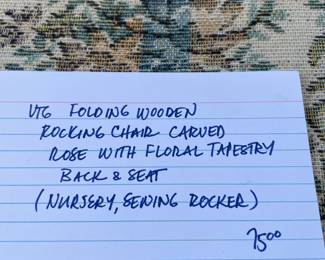 VTG FOLDING WOODEN
ROCKING CHAIR CARVED
ROSE WITH FLORAL TAPESTRY
BACK & SEAT
(NURSERY, SEWING ROCKER)
75⁰⁰